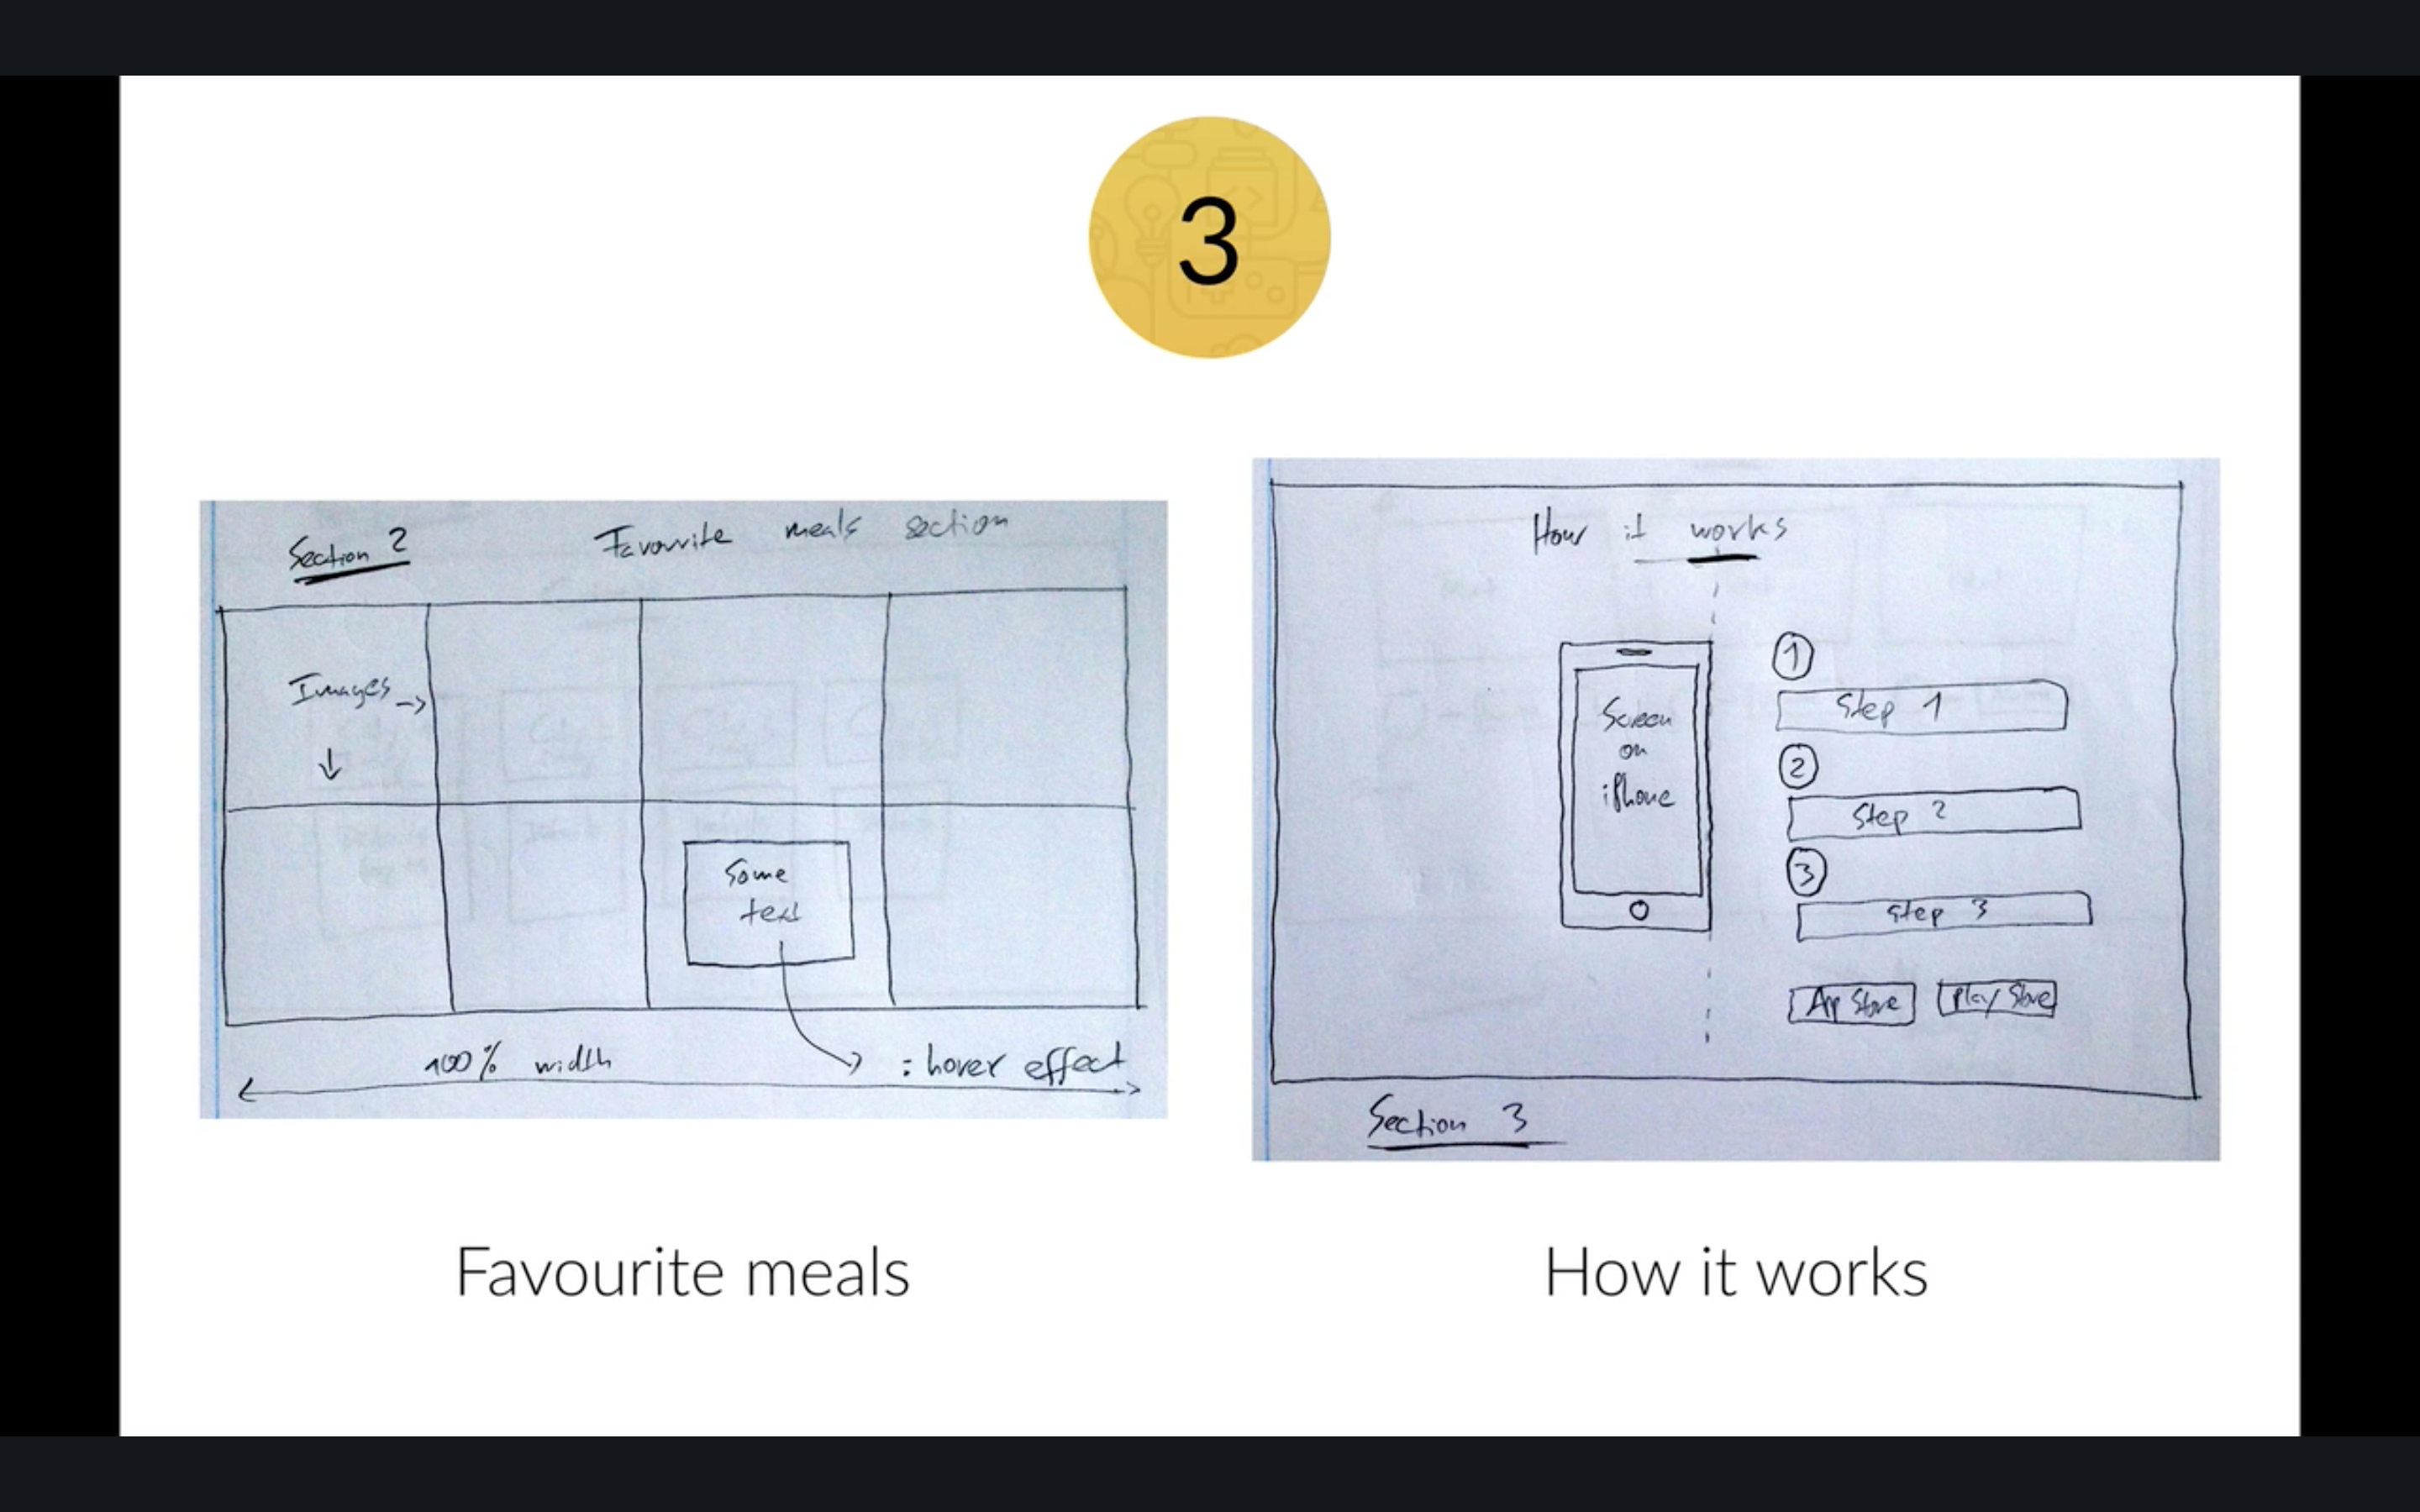 3
Section 2
Favourite meals section
Images →
↓
Some
text
100% width
: hover effect
Favourite meals
How it works
Screen
on
iPhone
1
Step 1
2
Step 2
3
Step 3
App Store
Play Store
Section 3
How it works